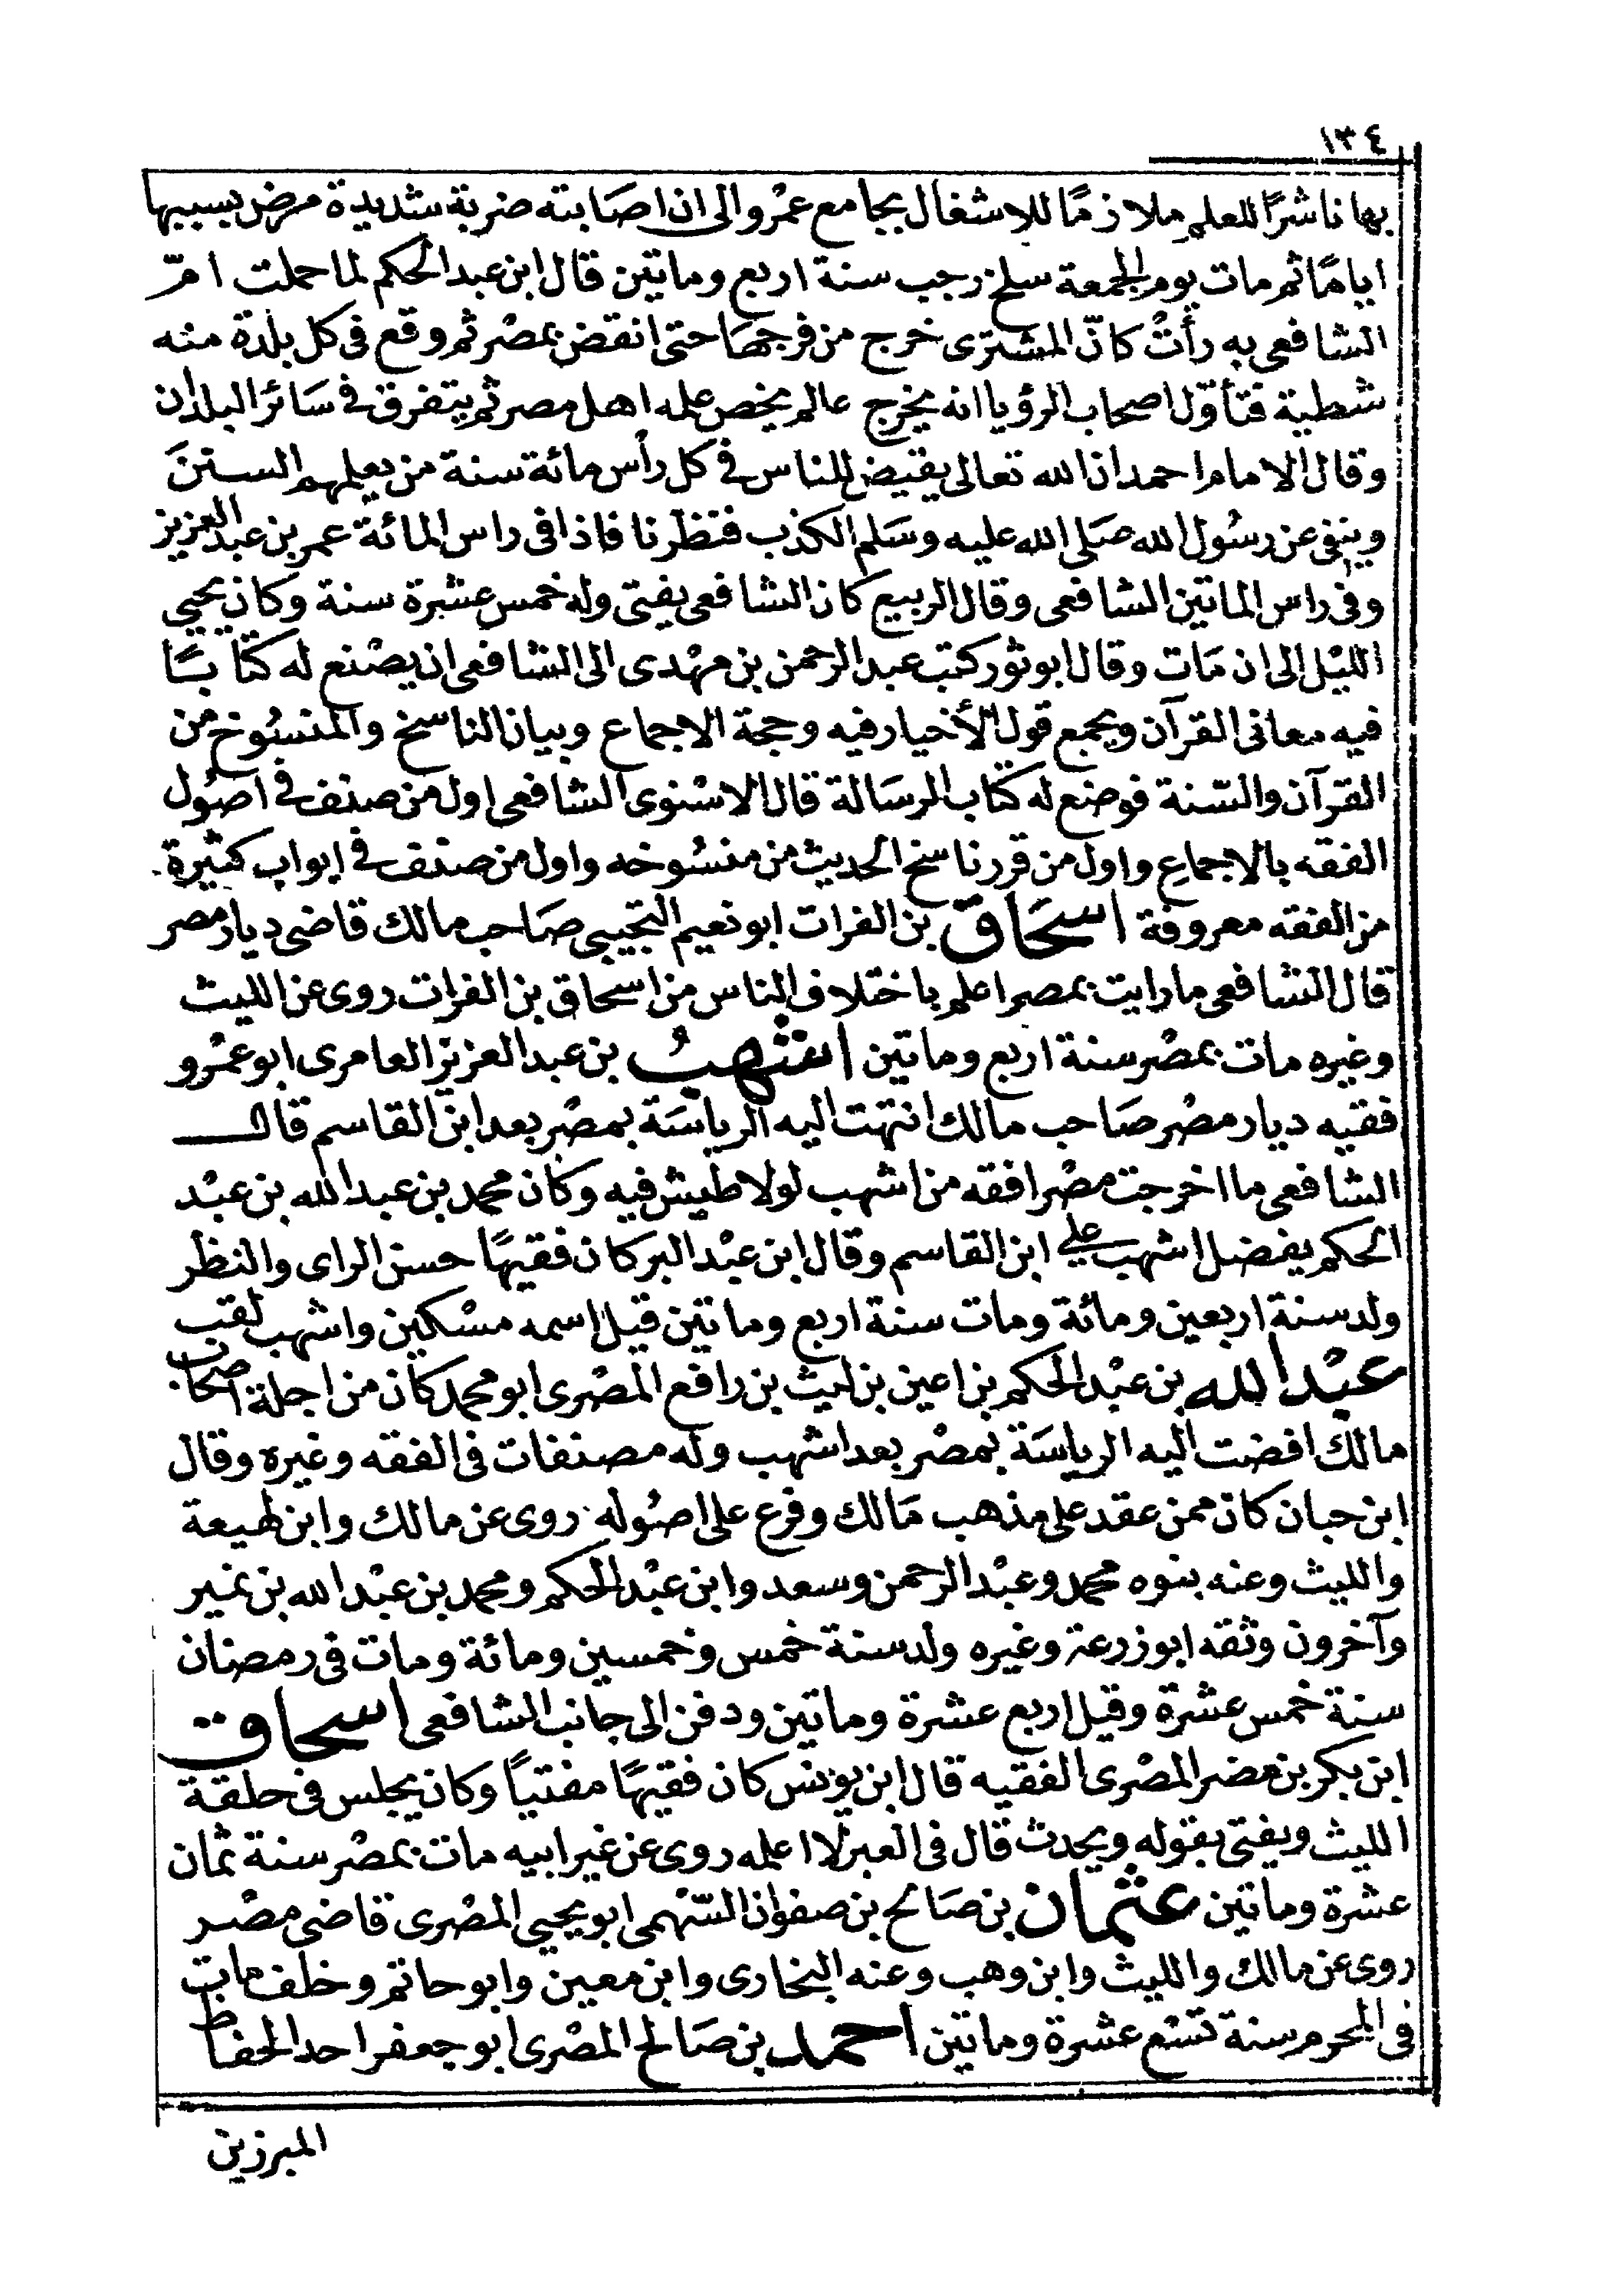 ١٣٤
بها ناشرًا للعلم ملازمًا للاشغال بجامع عمْرو الى ان اصَابته ضربة شديدة مرض بسببها
ايامًا ثم مات يوم الجمعة سلخ رجب سنة اربع وماتين قال ابن عبد الحكم لما حملت امّ
الشافعى به رأتْ كانّ المشترى خرج من فرجهَا حتى انقض بمصْر ثم وقع فى كل بلدة منه
شظية فتأوّل اصحاب الرؤيا انه يخرج عالم يخص علمه اهل مصر ثم يتفرق فى سَائر البلدان
وقال الامام احمد ان الله تعالى يقيض للناس فى كل رأس مائة سنة من يعلمهم السننَ
وينفى عن رسُول الله صَلى الله عليه وسَلم الكذب فنظرنا فاذا فى راس المائة عمر بن عبد العزيز
وفى راس الماتين الشافعى وقال الربيع كان الشافعى يفتى وله خمس عشرة سنة وكان يحيى
الليْل الى ان مَات وقال ابو ثور كتب عبد الرحمن بن مهْدى الى الشافعى ان يصْنع له كتَابًا
فيه معانى القرآن ويجمع قول الأخيار فيه وحجة الاجماع وبيان الناسخ والمنسُوخ من
القرآن والسّنة فوضع له كتاب الرسَالة قال الاسْنوى الشافعى اول من صنف فى اصُول
الفقه بالاجماع واول من قرر ناسخ الحديث من منسُوخه واول من صنف فى ابواب كثيرة
من الفقه معروفة اسحَاق بن الفرات ابو نعيم التجيبى صَاحب مالك قاضى ديار مصر
قال الشافعى ما رايت بمصر اعلم باختلاف الناس من اسحاق بن الفرات روى عن الليث
وغيره مات بمصْر سنة اربع وماتين اشهبُ بن عبد العزيز العامرى ابو عمْرو
فقيه ديار مصْر صَاحب مالك انتهت اليه الرياسَة بمصْر بعد ابن القاسم قال
الشافعى ما اخرجت مصْر افقه من اشهب لولا طيش فيه وكان محمد بن عبد الله بن عبْد
الحكم يفضل اشهب على ابن القاسم وقال ابن عبْد البر كان فقيهًا حسن الراى والنظر
ولد سنة اربعين ومائة ومات سنة اربع وماتين قيل اسمه مسْكين واشهب لقب
عبْد الله بن عبْد الحكم بن اعين بن ليث بن رافع المصْرى ابو محمد كان من اجلة اصحاب
مالك افضت اليه الرياسَة بمصْر بعد اشهب وله مصنفات فى الفقه وغيره وقال
ابن حبان كان ممن عقد على مذهب مَالك وفرع على اصُوله روى عن مالك وابن لهيعة
والليث وعنه بنوه محمد وعبْد الرحمن وسعد وابن عبْد الحكم ومحمد بن عبْد الله بن نمير
وآخرون وثقه ابو زرعة وغيره ولد سنة خمس وخمسين ومائة ومات فى رمضان
سنة خمس عشرة وقيل اربع عشرة وماتين ودفن الى جانب الشافعى اسحاق
ابن بكر بن مضر المصْرى الفقيه قال ابن يونس كان فقيهًا مفتيًا وكان يجلس فى حلقة
الليث ويفتى بقوله ويحدث قال فى العبر لا اعلمه روى عن غير ابيه مات بمصْر سنة ثمان
عشرة وماتين عثمان بن صَالح بن صفوان السّهْمى ابو يحيى المصْرى قاضى مصْر
روى عن مالك والليث وابن وهب وعنه البخارى وابن معين وابو حاتم وخلف مات
فى المحرم سنة تسْع عشرة وماتين احمد بن صَالح المصْرى ابو جعفر احد الحفاظ
المبرزين